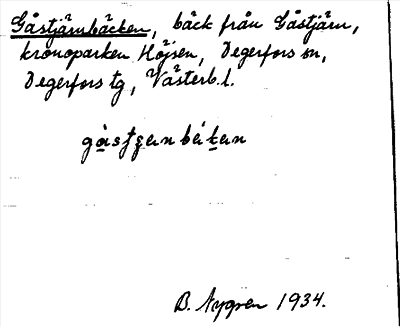 Gåstjärnbäcken, bäck från Gåstjärn,
kronoparken Höjsen, Degerfors sn,
Degerfors tg, Västerb. l.
B. Nygren 1934.